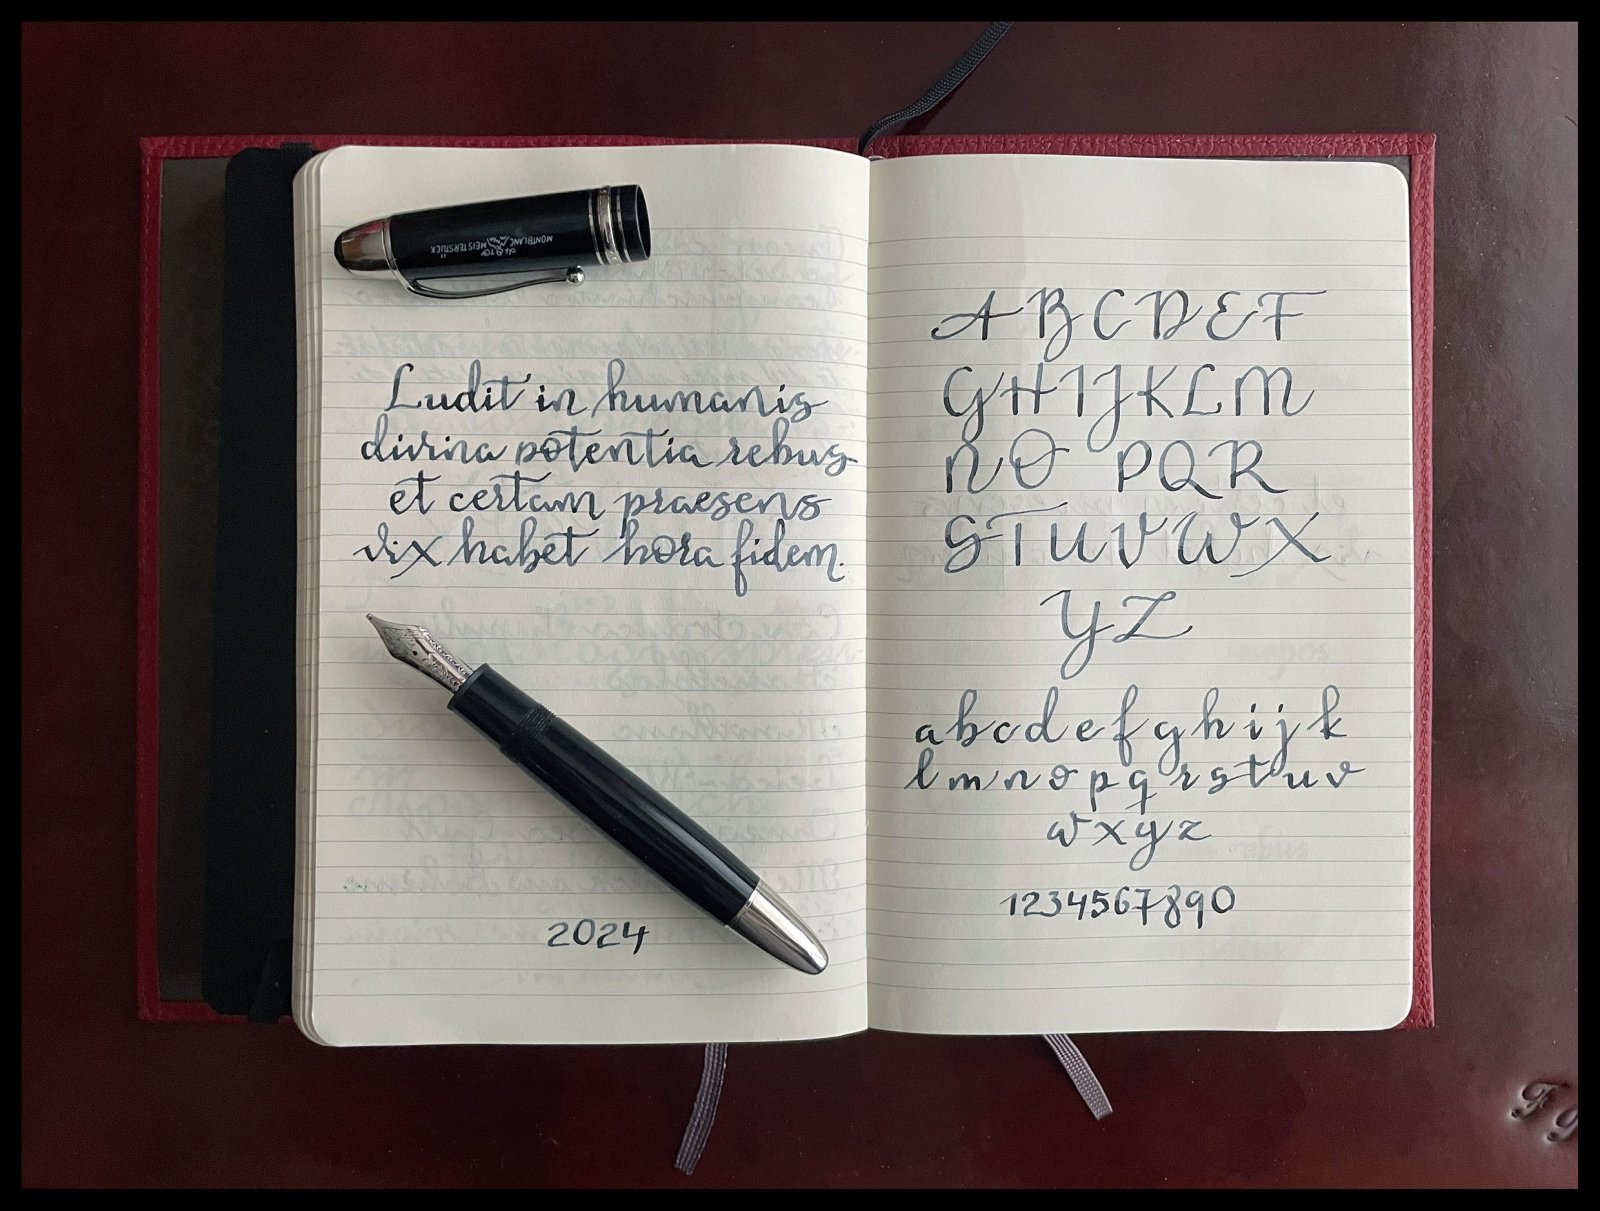 MONTBLANC MEISTERSTÜCK
4810
Ludit in humanis
divina potentia rebus
et certam praesens
vix habet hora fidem.
2024
A B C D E F
G H I J K L M
N O P Q R
S T U V W X
Y Z
a b c d e f g h i j k
l m n o p q r s t u v
w x y z
1234567890